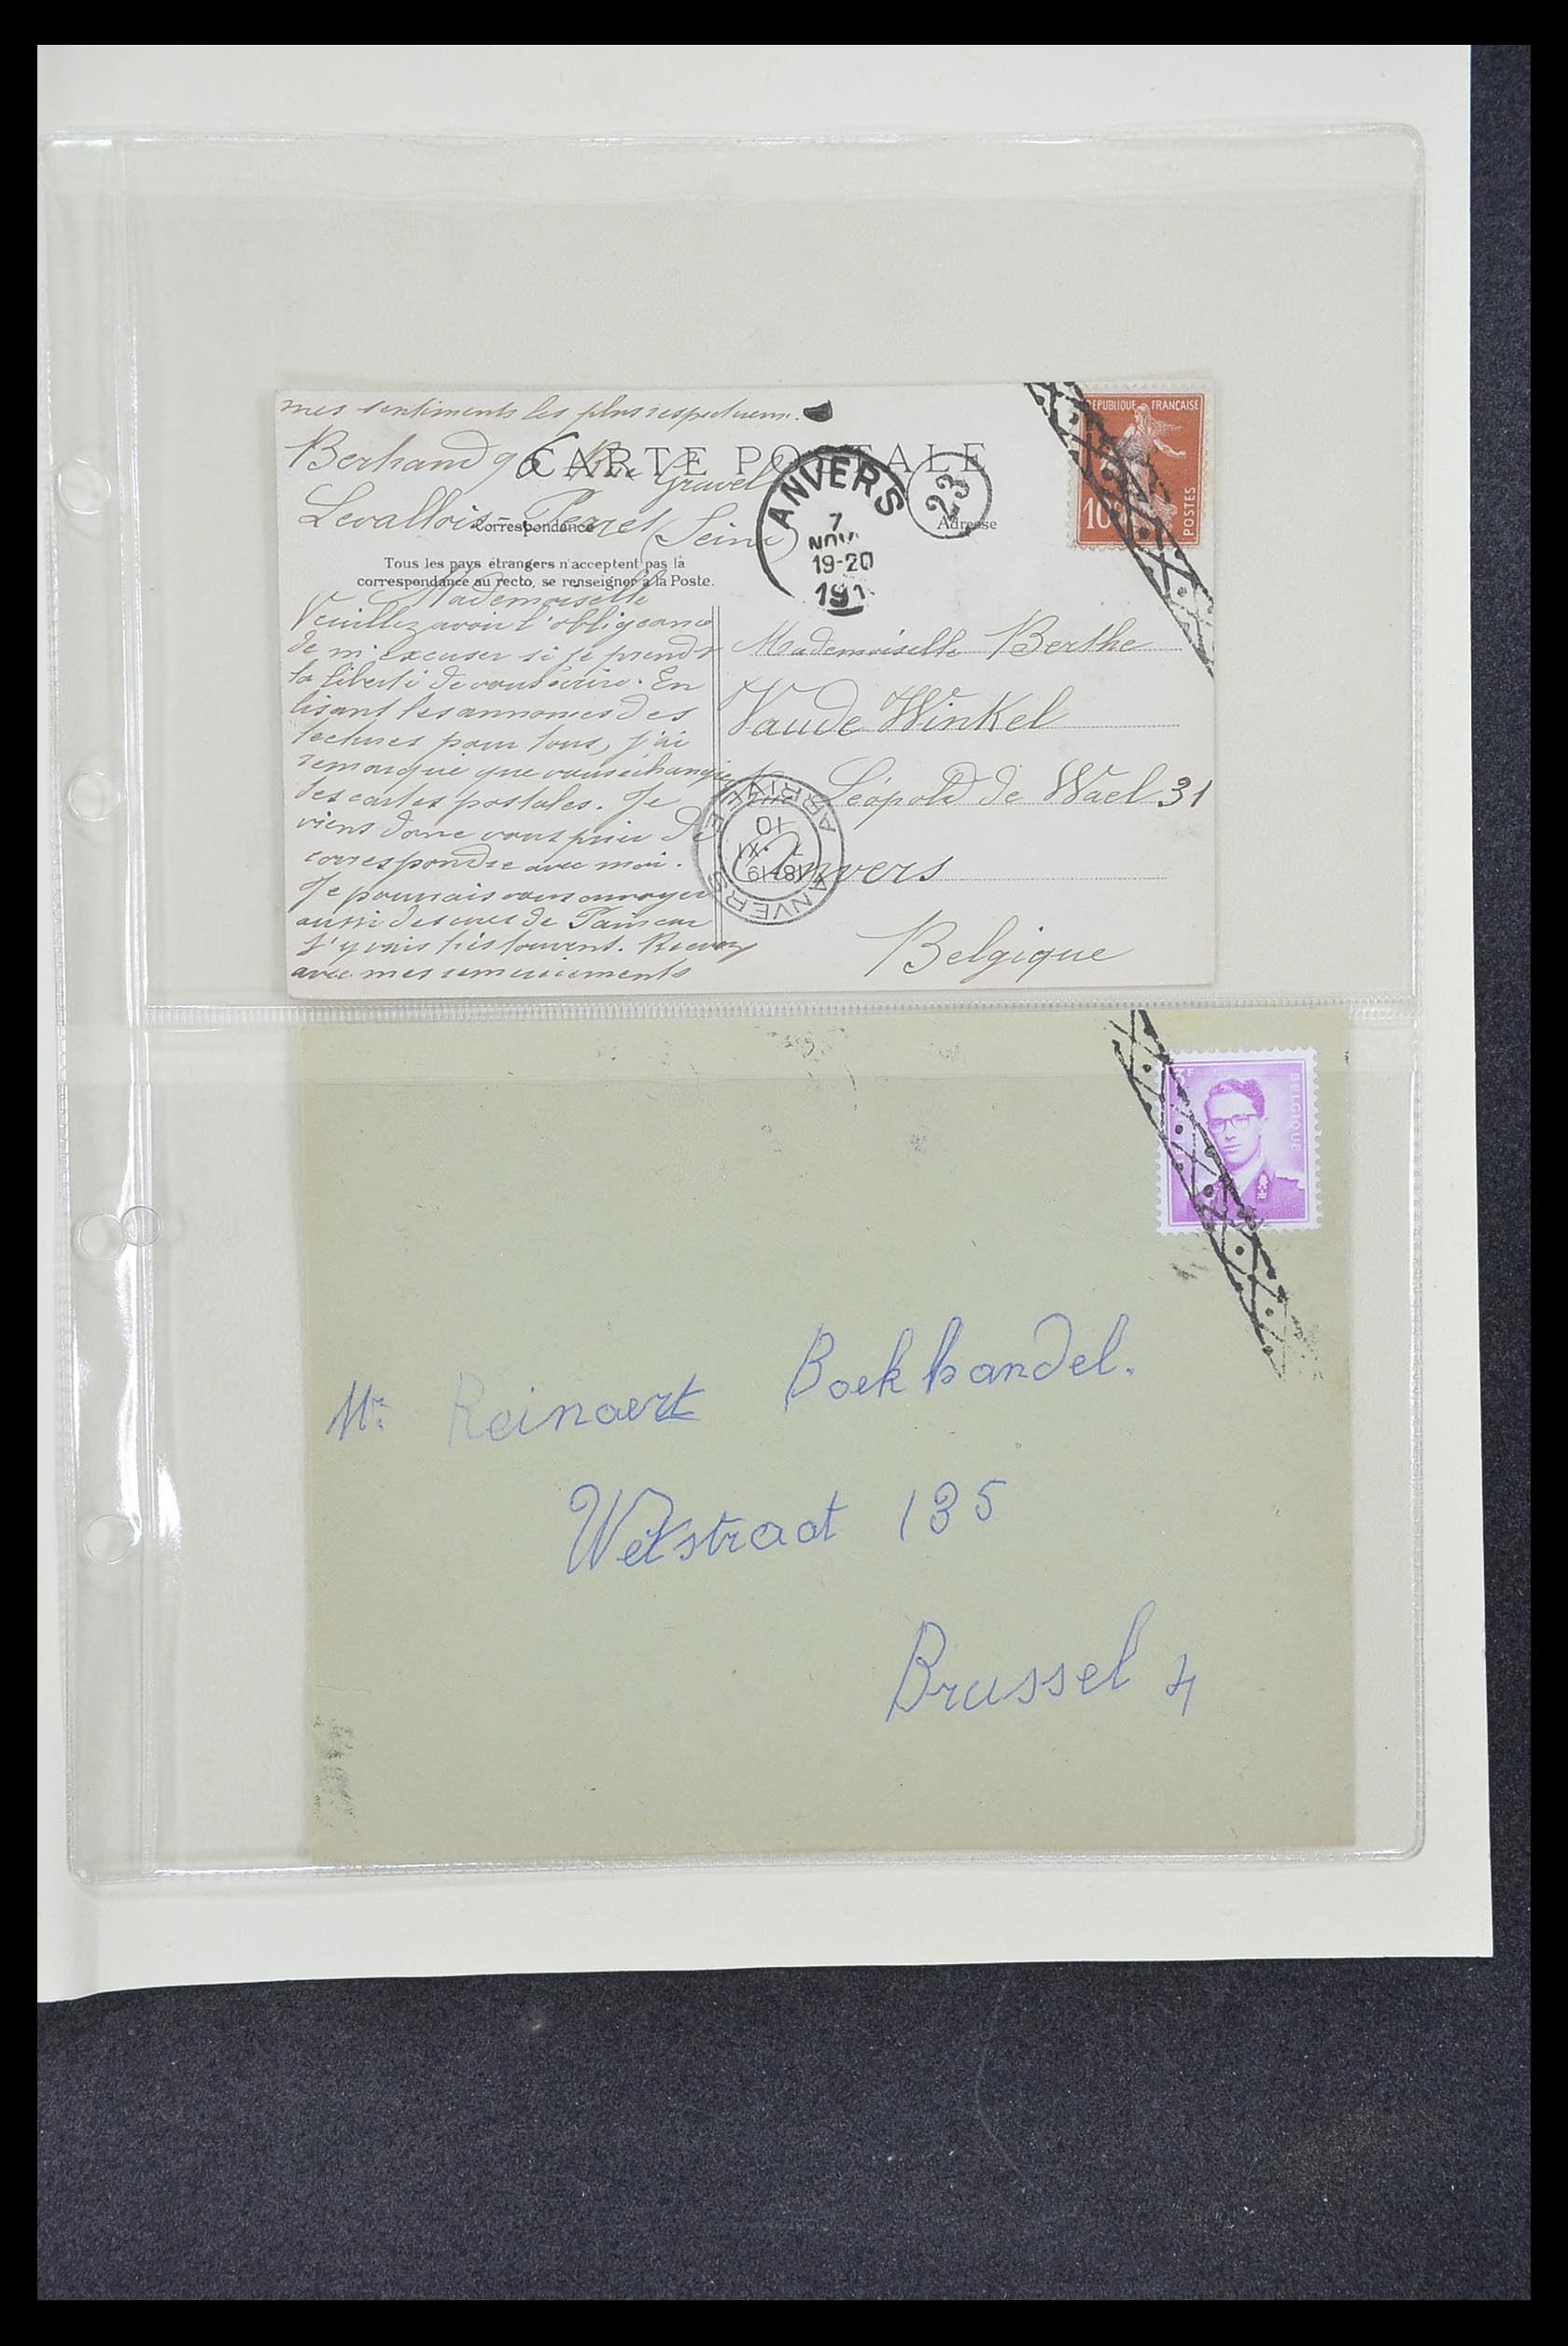 mes sentiments les plus respectueux.
Bertrand 96 Rue Gravel
CARTE POSTALE
Levallois-Perret (Seine)
Correspondance
Adresse
Tous les pays étrangers n'acceptent pas la
correspondance au recto, se renseigner à la Poste.
Mademoiselle
Veuillez avoir l'obligeance
de m'excuser si je prends
la liberté de vous écrire. En
lisant les annonces des
lectures pour tous, j'ai
remarqué que vous échangiez
des cartes postales. Je
viens donc vous prier de
correspondre avec moi.
Je pourrais vous envoyer
aussi des vues de Paris car
j'y vais très souvent. Recevez
avec mes remerciements
ANVERS
7
NOV
19-20
191
23
REPUBLIQUE FRANÇAISE
10
POSTES
Mademoiselle Berthe
Vande Winkel
Léopold de Wael 31
Anvers
Belgique
ANVERS
ARRIVEE
18-19
7 XI
10
3F
BELGIQUE
Mr Reinaert Boekhandel.
Wetstraat 135
Brussel 4